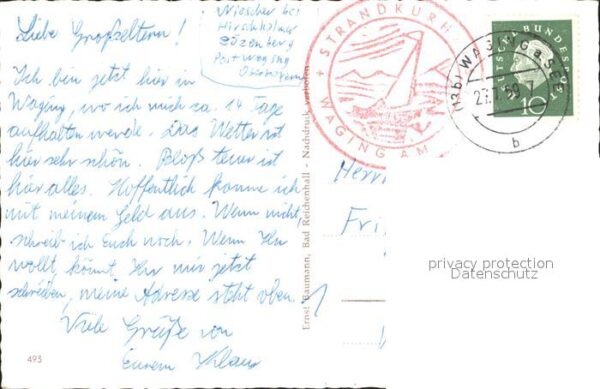 Liebe Großeltern!
Ich bin jetzt hier in
Waging, wo ich mich ca. 14 Tage
aufhalten werde. Das Wetter ist
hier sehr schön. Bloß teuer ist
hier alles. Hoffentlich komme ich
mit meinem Geld aus. Wenn nicht,
schreib ich Euch noch. Wenn Ihr
wollt, könnt Ihr mir jetzt
schreiben, meine Adresse steht oben.
Viele Grüße von
Eurem Klaus
bei
Post Waging
Oberbayern
493
Ernst Baumann, Bad Reichenhall - Nachdruck verboten
STRANDKURH
WAGING AM
(13b) WAGING a SEE
27.7.60
b
DEUTSCHE BUNDESPOST
10
Herrn
Fri
privacy protection
Datenschutz